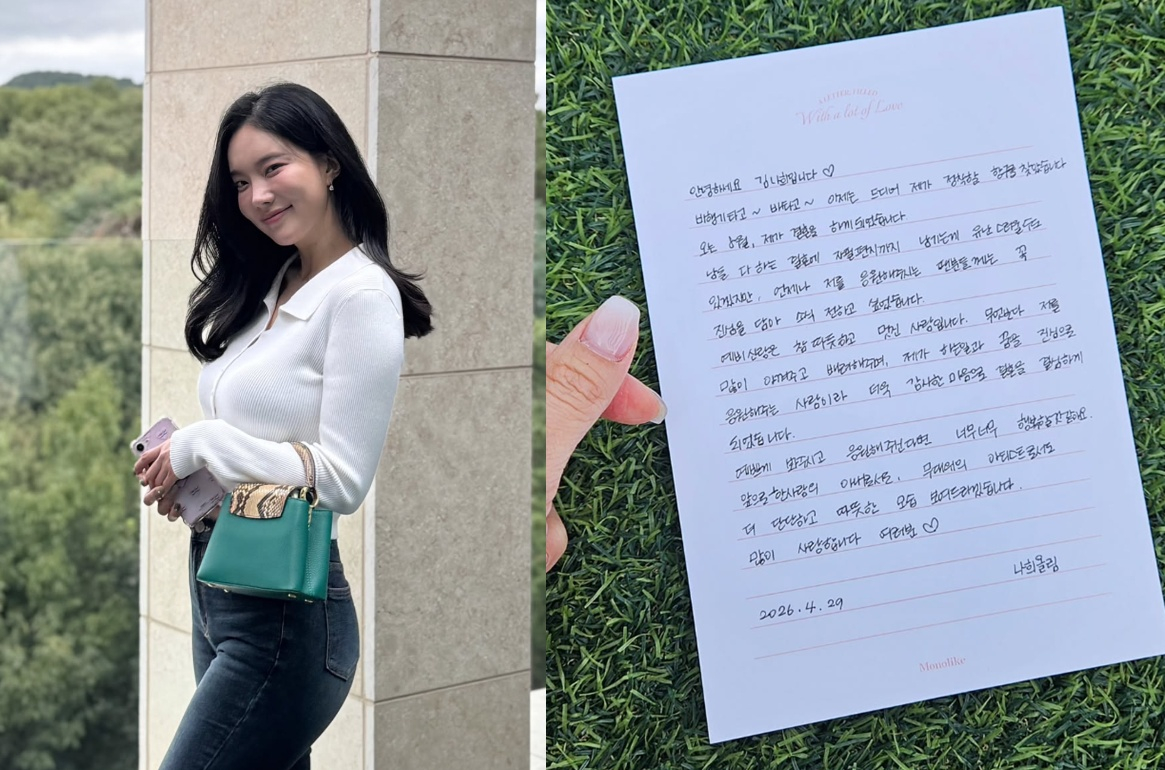 LETTER, DEED
With a lot of Love
안녕하세요 김나희입니다 ♡
비행기타고 ~ 바타고 ~ 이제는 드디어 제가 정착할 항구를 찾았습니다
오는 월, 제가 결혼을 하게 되었습니다
남들 다 하는 결혼에 자필편지까지 남기는게 유난스러울수도
있겠지만, 언제나 저를 응원해주시는 팬분들께는 꼭
진심을 담아 소식 전하고 싶었습니다.
예비신랑은 참 따듯하고 멋진 사람입니다. 무엇보다 저를
많이 아껴주고 배려해주며, 제가 하는일과 꿈을 진심으로
응원해주는 사람이라 더욱 감사한 마음으로 결혼을 결심하게
되었습니다.
예쁘게 봐주시고 응원해주신다면 너무너무 행복할것같아요.
앞으로 한사람의 아내로서도, 무대위의 아티스트로서도
더 단단하고 따뜻한 모습 보여드리겠습니다.
많이 사랑합니다 여러분 ♡
나희올림
2026.4.29
Monolike